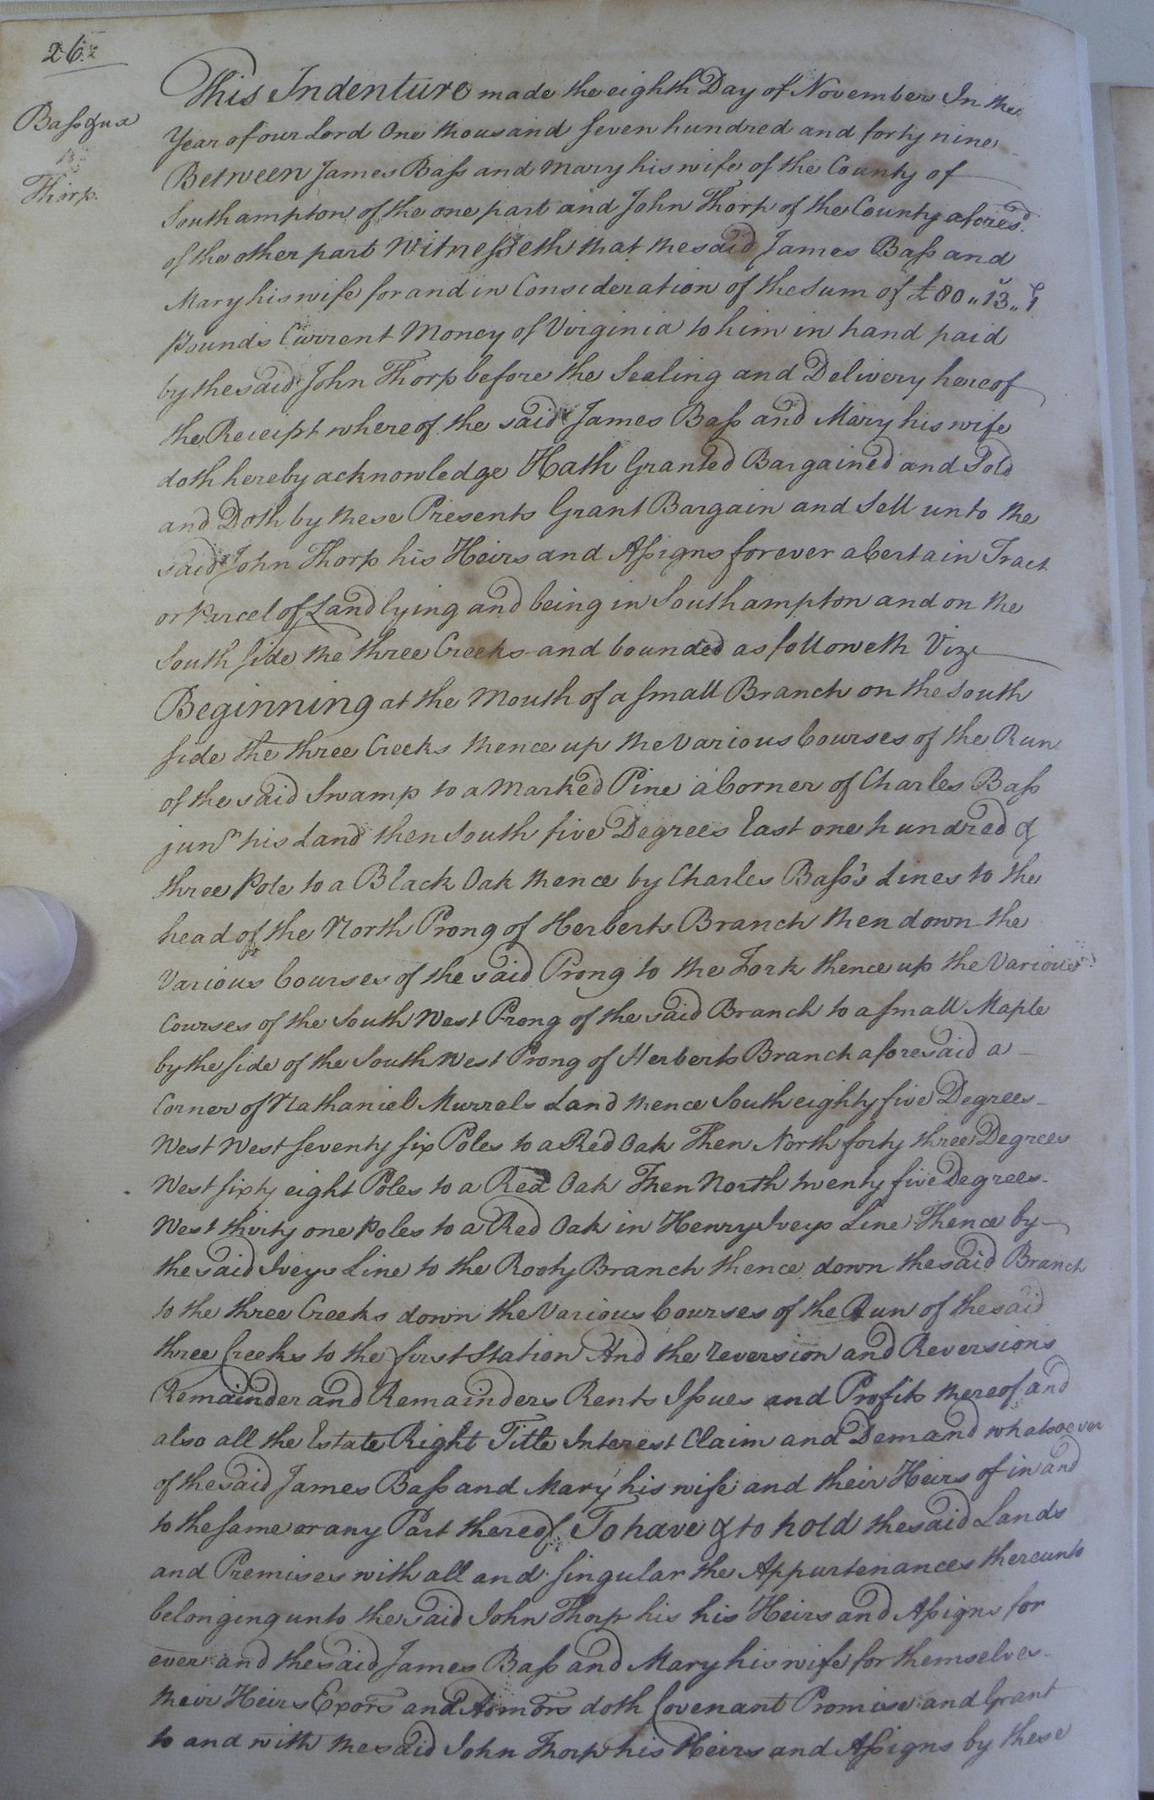 262
Bass &ux
to
Thorp.
This Indenture made the eighth Day of November In the
Year of our Lord One thousand Seven hundred and forty nine
Between James Bass and Mary his wife of the County of
Southampton of the one part and John Thorp of the County aforesd.
of the other part Witnesseth that the said James Bass and
Mary his wife for and in Consideration of the Sum of £80,,13,,1
Pounds Current Money of Virginia to him in hand paid
by the said John Thorp before the Sealing and Delivery hereof
the Receipt whereof the said James Bass and Mary his wife
doth hereby acknowledge Hath Granted Bargained and Sold
and Doth by these Presents Grant Bargain and Sell unto the
said John Thorp his Heirs and Assigns forever a Certain Tract
or Parcel of Land lying and being in Southampton and on the
South side the three Creeks and bounded as followeth Vizt
Beginning at the Mouth of a small Branch on the South
side the three Creeks thence up the Various Courses of the Run
of the said Swamp to a Marked Pine a Corner of Charles Bass
junr his Land then South five Degrees East one hundred &
three Pole to a Black Oak thence by Charles Bass's Lines to the
head of the North Prong of Herberts Branch then down the
Various Courses of the said Prong to the Fork thence up the Various
Courses of the South West Prong of the said Branch to a small Maple
by the side of the South West Prong of Herberts Branch aforesaid a
Corner of Nathaniel Murrels Land thence South eighty five Degrees
West West seventy six Poles to a Red Oak Then North forty three Degrees
West sixty eight Poles to a Red Oak Then North twenty five Degrees
West thirty one Poles to a Red Oak in Henry Iveys Line Thence by
the said Iveys Line to the Rooty Branch thence down the said Branch
to the three Creeks down the Various Courses of the Run of the said
three Creeks to the first Station And the reversion and Reversions
Remainder and Remainders Rents Issues and Profits thereof and
also all the Estate Right Title Interest Claim and Demand whatsoever
of the said James Bass and Mary his wife and their Heirs of in and
to the same or any Part thereof To have & to hold the said Lands
and Premises with all and singular the Appurtenances thereunto
belonging unto the said John Thorp his his Heirs and Assigns for
ever and the said James Bass and Mary his wife for themselves
their Heirs Exors and Admors doth Covenant Promise and Grant
to and with the said John Thorp his Heirs and Assigns by these